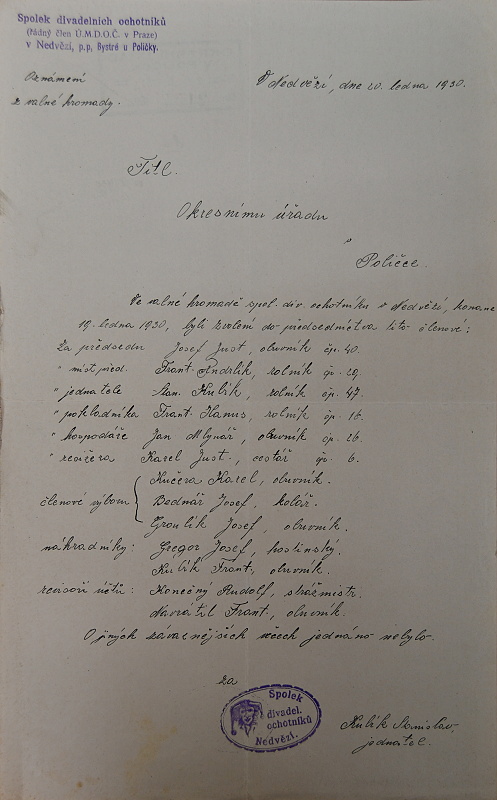 Spolek divadelních ochotníků
(řádný člen Ú.M.D.O.Č. v Praze)
v Nedvězí, p.p. Bystré u Poličky.
Oznámení
z valné hromady.
V Nedvězí, dne 20. ledna 1930.
Titl.
Okresnímu úřadu
v
Poličce.
Ve valné hromadě spol. div. ochotníků v Nedvězí, konané
19. ledna 1930, byli zvoleni do předsednictva tito členové:
Za předsedu Josef Just, obuvník čp. 40.
" místpřed. Frant. Andrlík, rolník čp. 29.
" jednatele Stan. Kulík, rolník čp. 47.
" pokladníka Frant. Hanus, rolník čp. 16.
" hospodáře Jan Mlynář, obuvník čp. 26.
" režiséra Karel Just., cestář čp. 6.
členové výboru
Kučera Karel, obuvník.
Bednář Josef, kolář.
Groulík Josef, obuvník.
náhradníky: Gregor Josef, hostinský.
Kulík Frant., obuvník.
revisoři účtů: Konečný Rudolf, strážmistr.
Navrátil Frant., obuvník.
O jiných závažnějších věcech jednáno nebylo.
za
Spolek
divadel.
ochotníků
Nedvězí.
Kulík Stanislav,
jednatel.